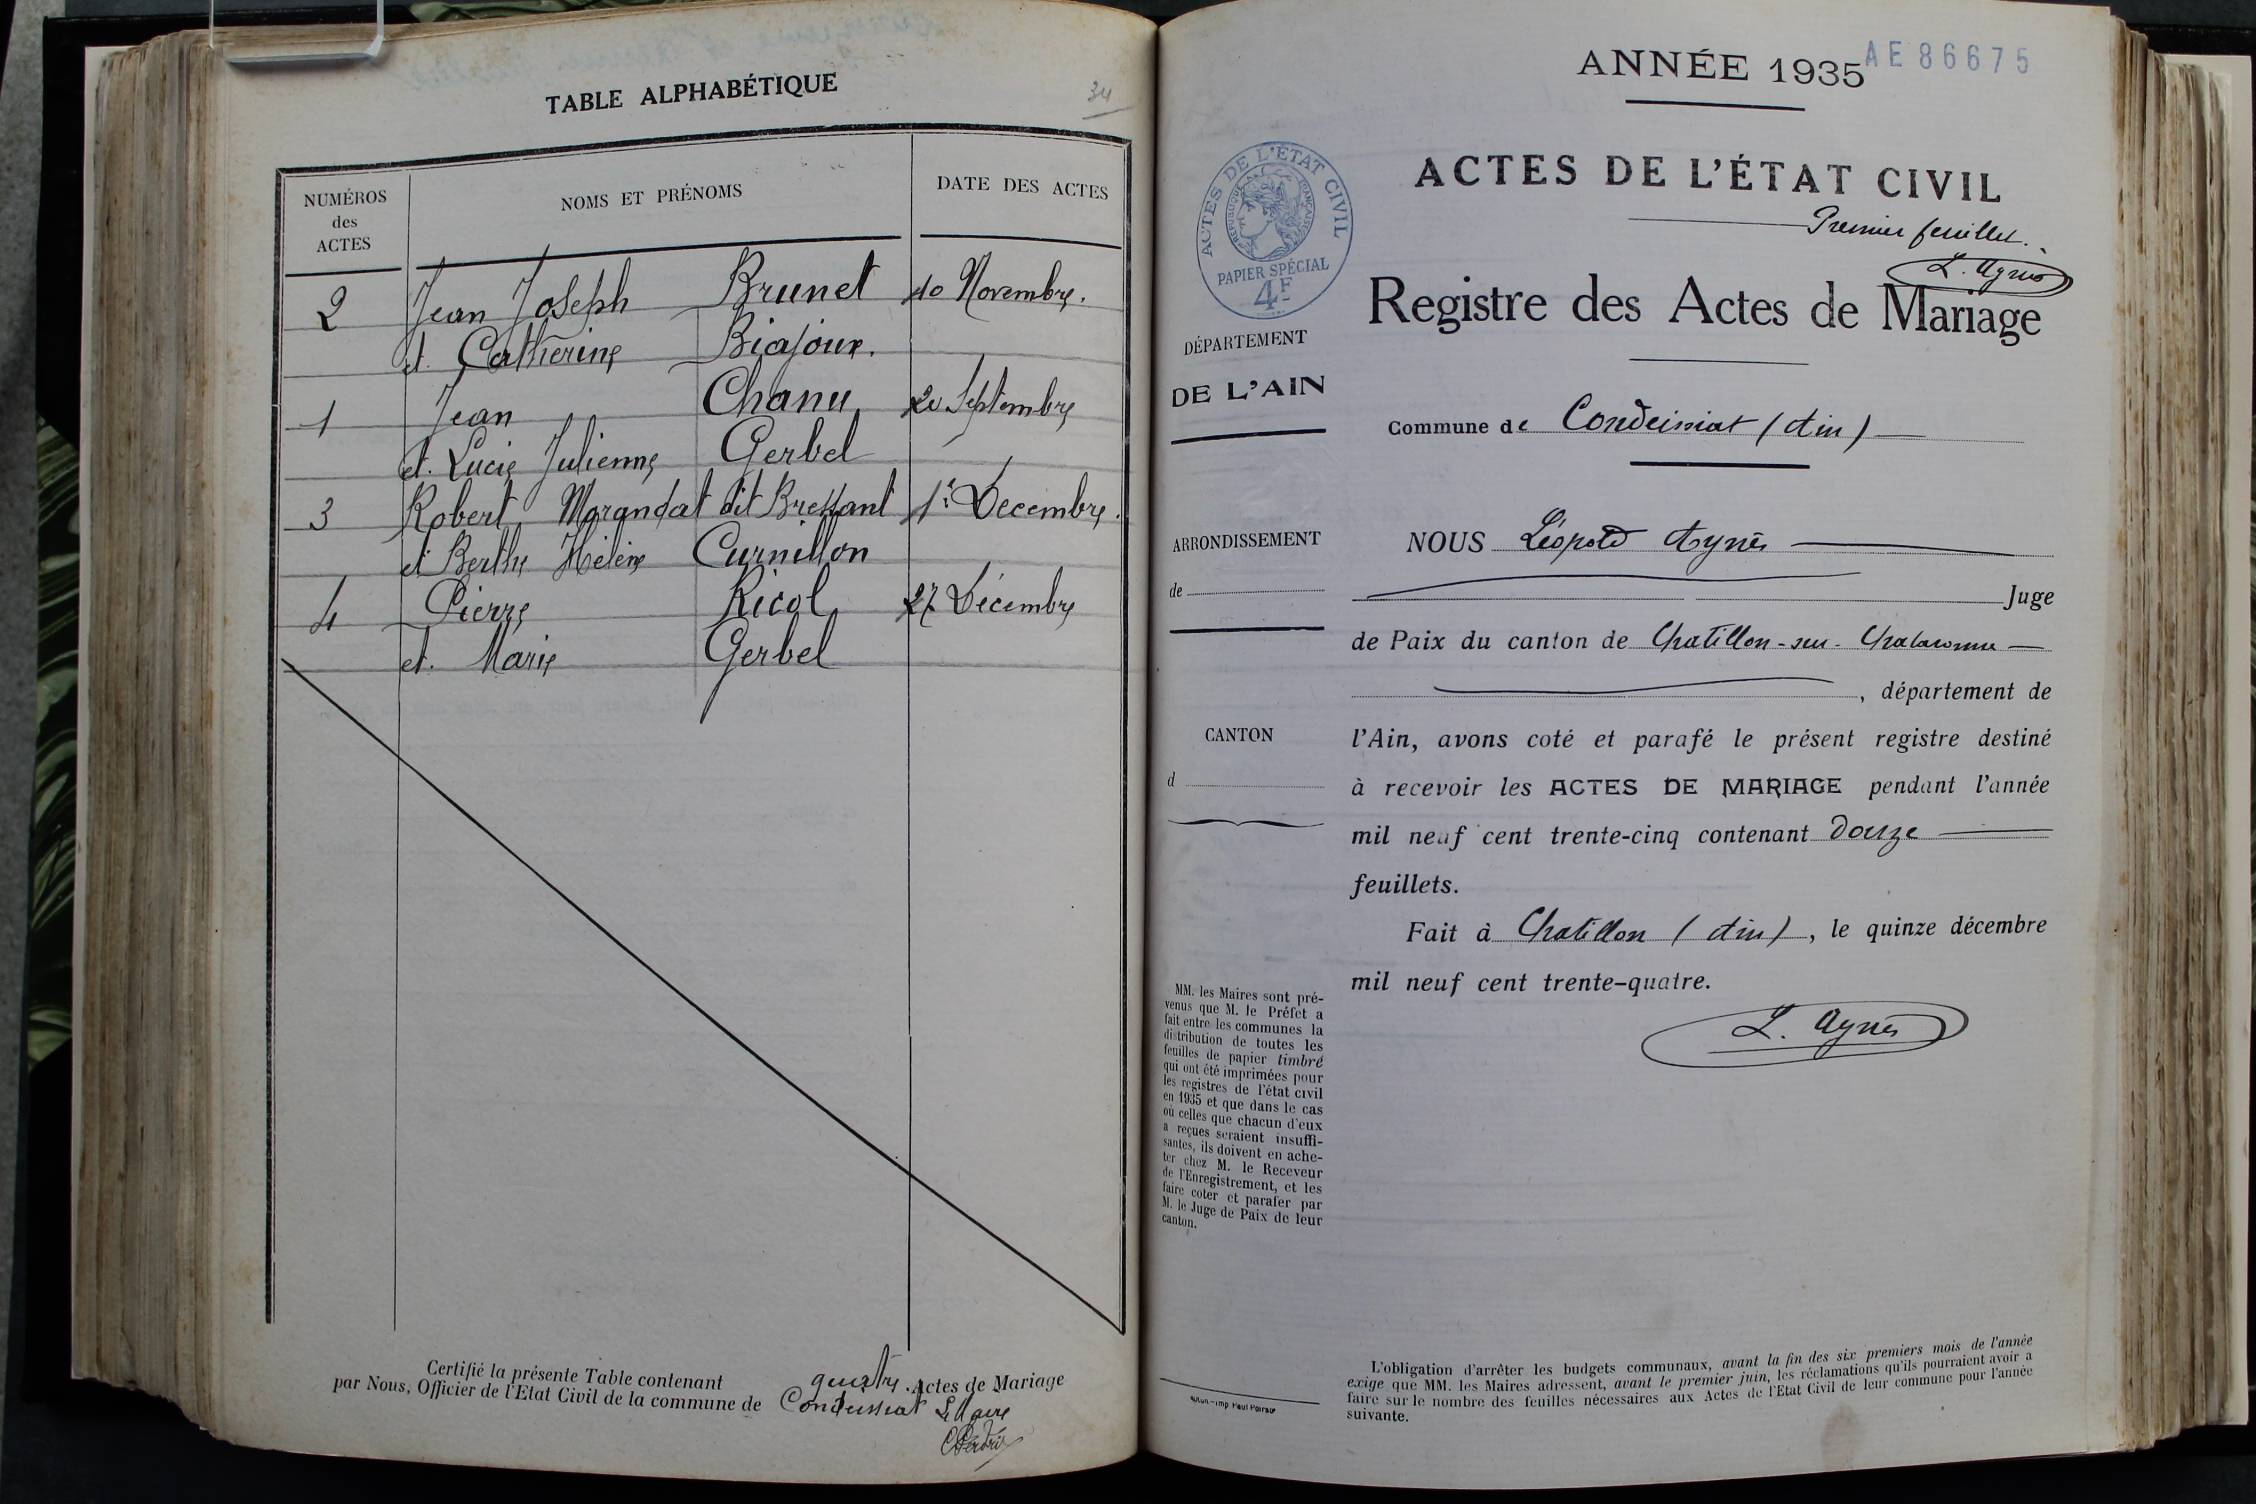 TABLE ALPHABÉTIQUE
34
NUMÉROS
des
ACTES
NOMS ET PRÉNOMS
DATE DES ACTES
2 Jean Joseph Brunet 10 Novembre.
et. Catherine Biajoux.
1 Jean Chanu 20 Septembre
et. Lucie Julienne Gerbel
3 Robert Morandat dit Bressant 1er Décembre.
et Berthe Hélène Curnillon
4 Pierre Ricol 27 Décembre
et. Marie Gerbel
Certifié la présente Table contenant quatre Actes de Mariage
par Nous, Officier de l'Etat Civil de la commune de Condeissiat Le Maire
ANNÉE 1935
AE 86675
ACTES DE L'ÉTAT CIVIL
Premier feuillet.
L. Aynès
Registre des Actes de Mariage
ACTES DE L'ÉTAT CIVIL
RÉPUBLIQUE FRANÇAISE
PAPIER SPÉCIAL
4F
DÉPARTEMENT
DE L'AIN
Commune de Condeissiat (Ain)
ARRONDISSEMENT
de
CANTON
d
NOUS Léopold Aynès
Juge
de Paix du canton de Chatillon-sur-Chalaronne
, département de
l'Ain, avons coté et parafé le présent registre destiné
à recevoir les ACTES DE MARIAGE pendant l'année
mil neuf cent trente-cinq contenant douze
feuillets.
Fait à Chatillon (Ain), le quinze décembre
mil neuf cent trente-quatre.
L. Aynès
MM. les Maires sont pré-
venus que M. le Préfet a
fait entre les communes la
distribution de toutes les
feuilles de papier timbré
qui ont été imprimées pour
les registres de l'état civil
en 1935 et que dans le cas
où celles que chacun d'eux
a reçues seraient insuffi-
santes, ils doivent en ache-
ter chez M. le Receveur
de l'Enregistrement, et les
faire coter et parafer par
M. le Juge de Paix de leur
canton.
L'obligation d'arrêter les budgets communaux, avant la fin des six premiers mois de l'année
exige que MM. les Maires adressent, avant le premier juin, les réclamations qu'ils pourraient avoir a
faire sur le nombre des feuilles nécessaires aux Actes de l'Etat Civil de leur commune pour l'année
suivante.